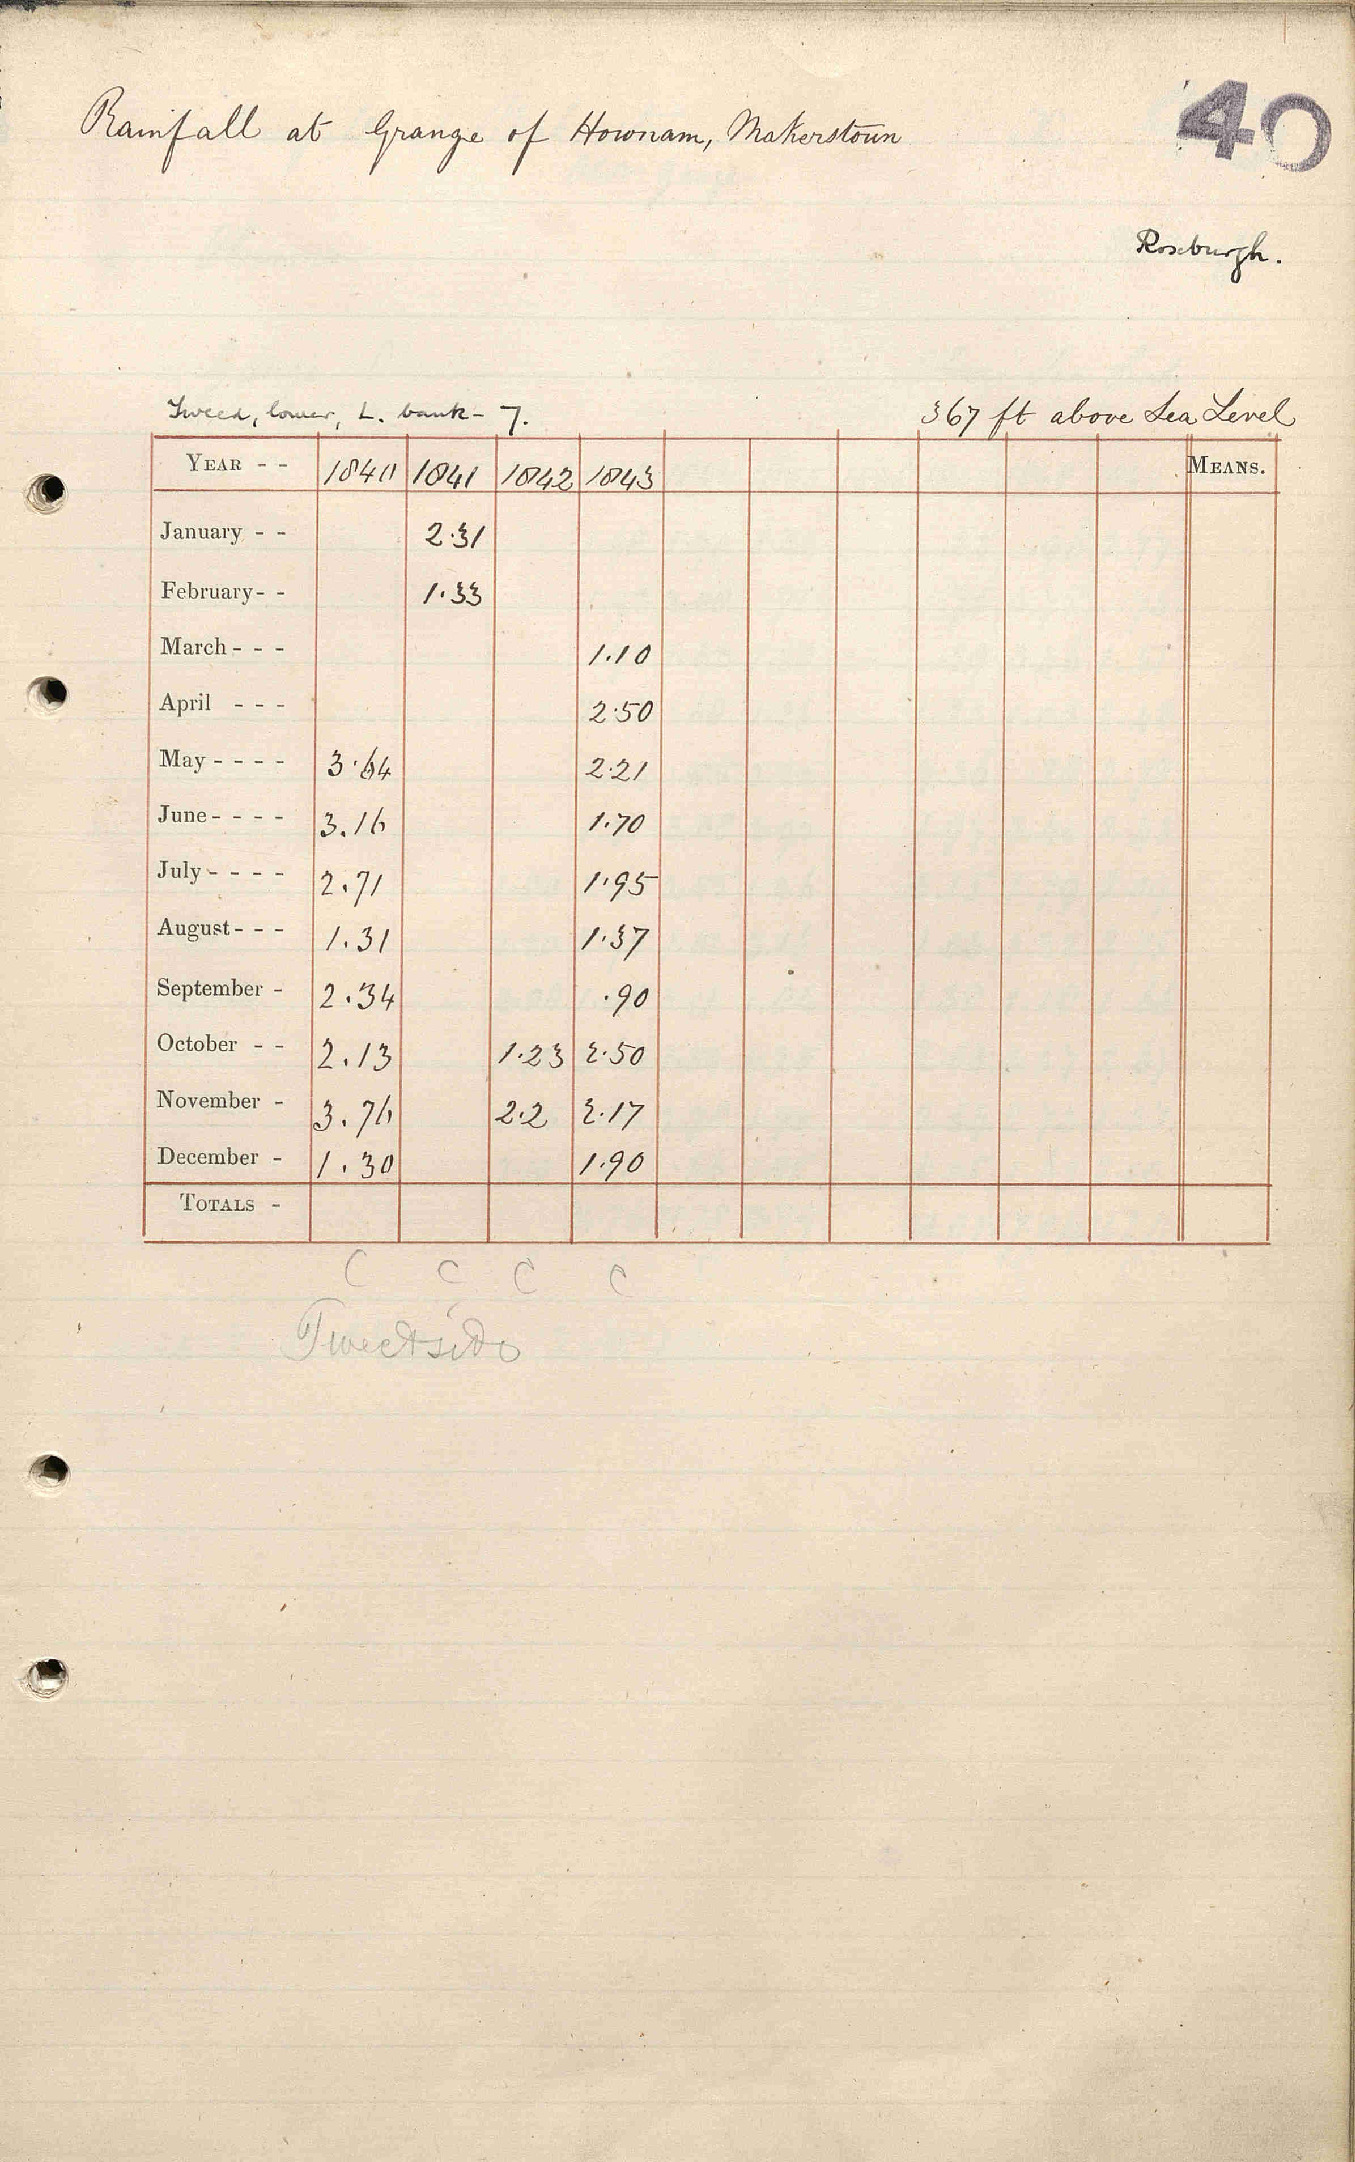 40
Rainfall at Grange of Hownam, Makerstoun
Roxburgh.
Tweed, lower, L. bank - 7. 367 ft above Sea Level
YEAR - - 1840 1841 1842 1843 MEANS.
January - - 2.31
February - - 1.33
March - - - 1.10
April - - - 2.50
May - - - - 3.64 2.21
June - - - - 3.16 1.70
July - - - - 2.71 1.95
August - - - 1.31 1.37
September - 2.34 .90
October - - 2.13 1.23 2.50
November - 3.76 2.2 2.17
December - 1.30 1.90
TOTALS -
C C C C